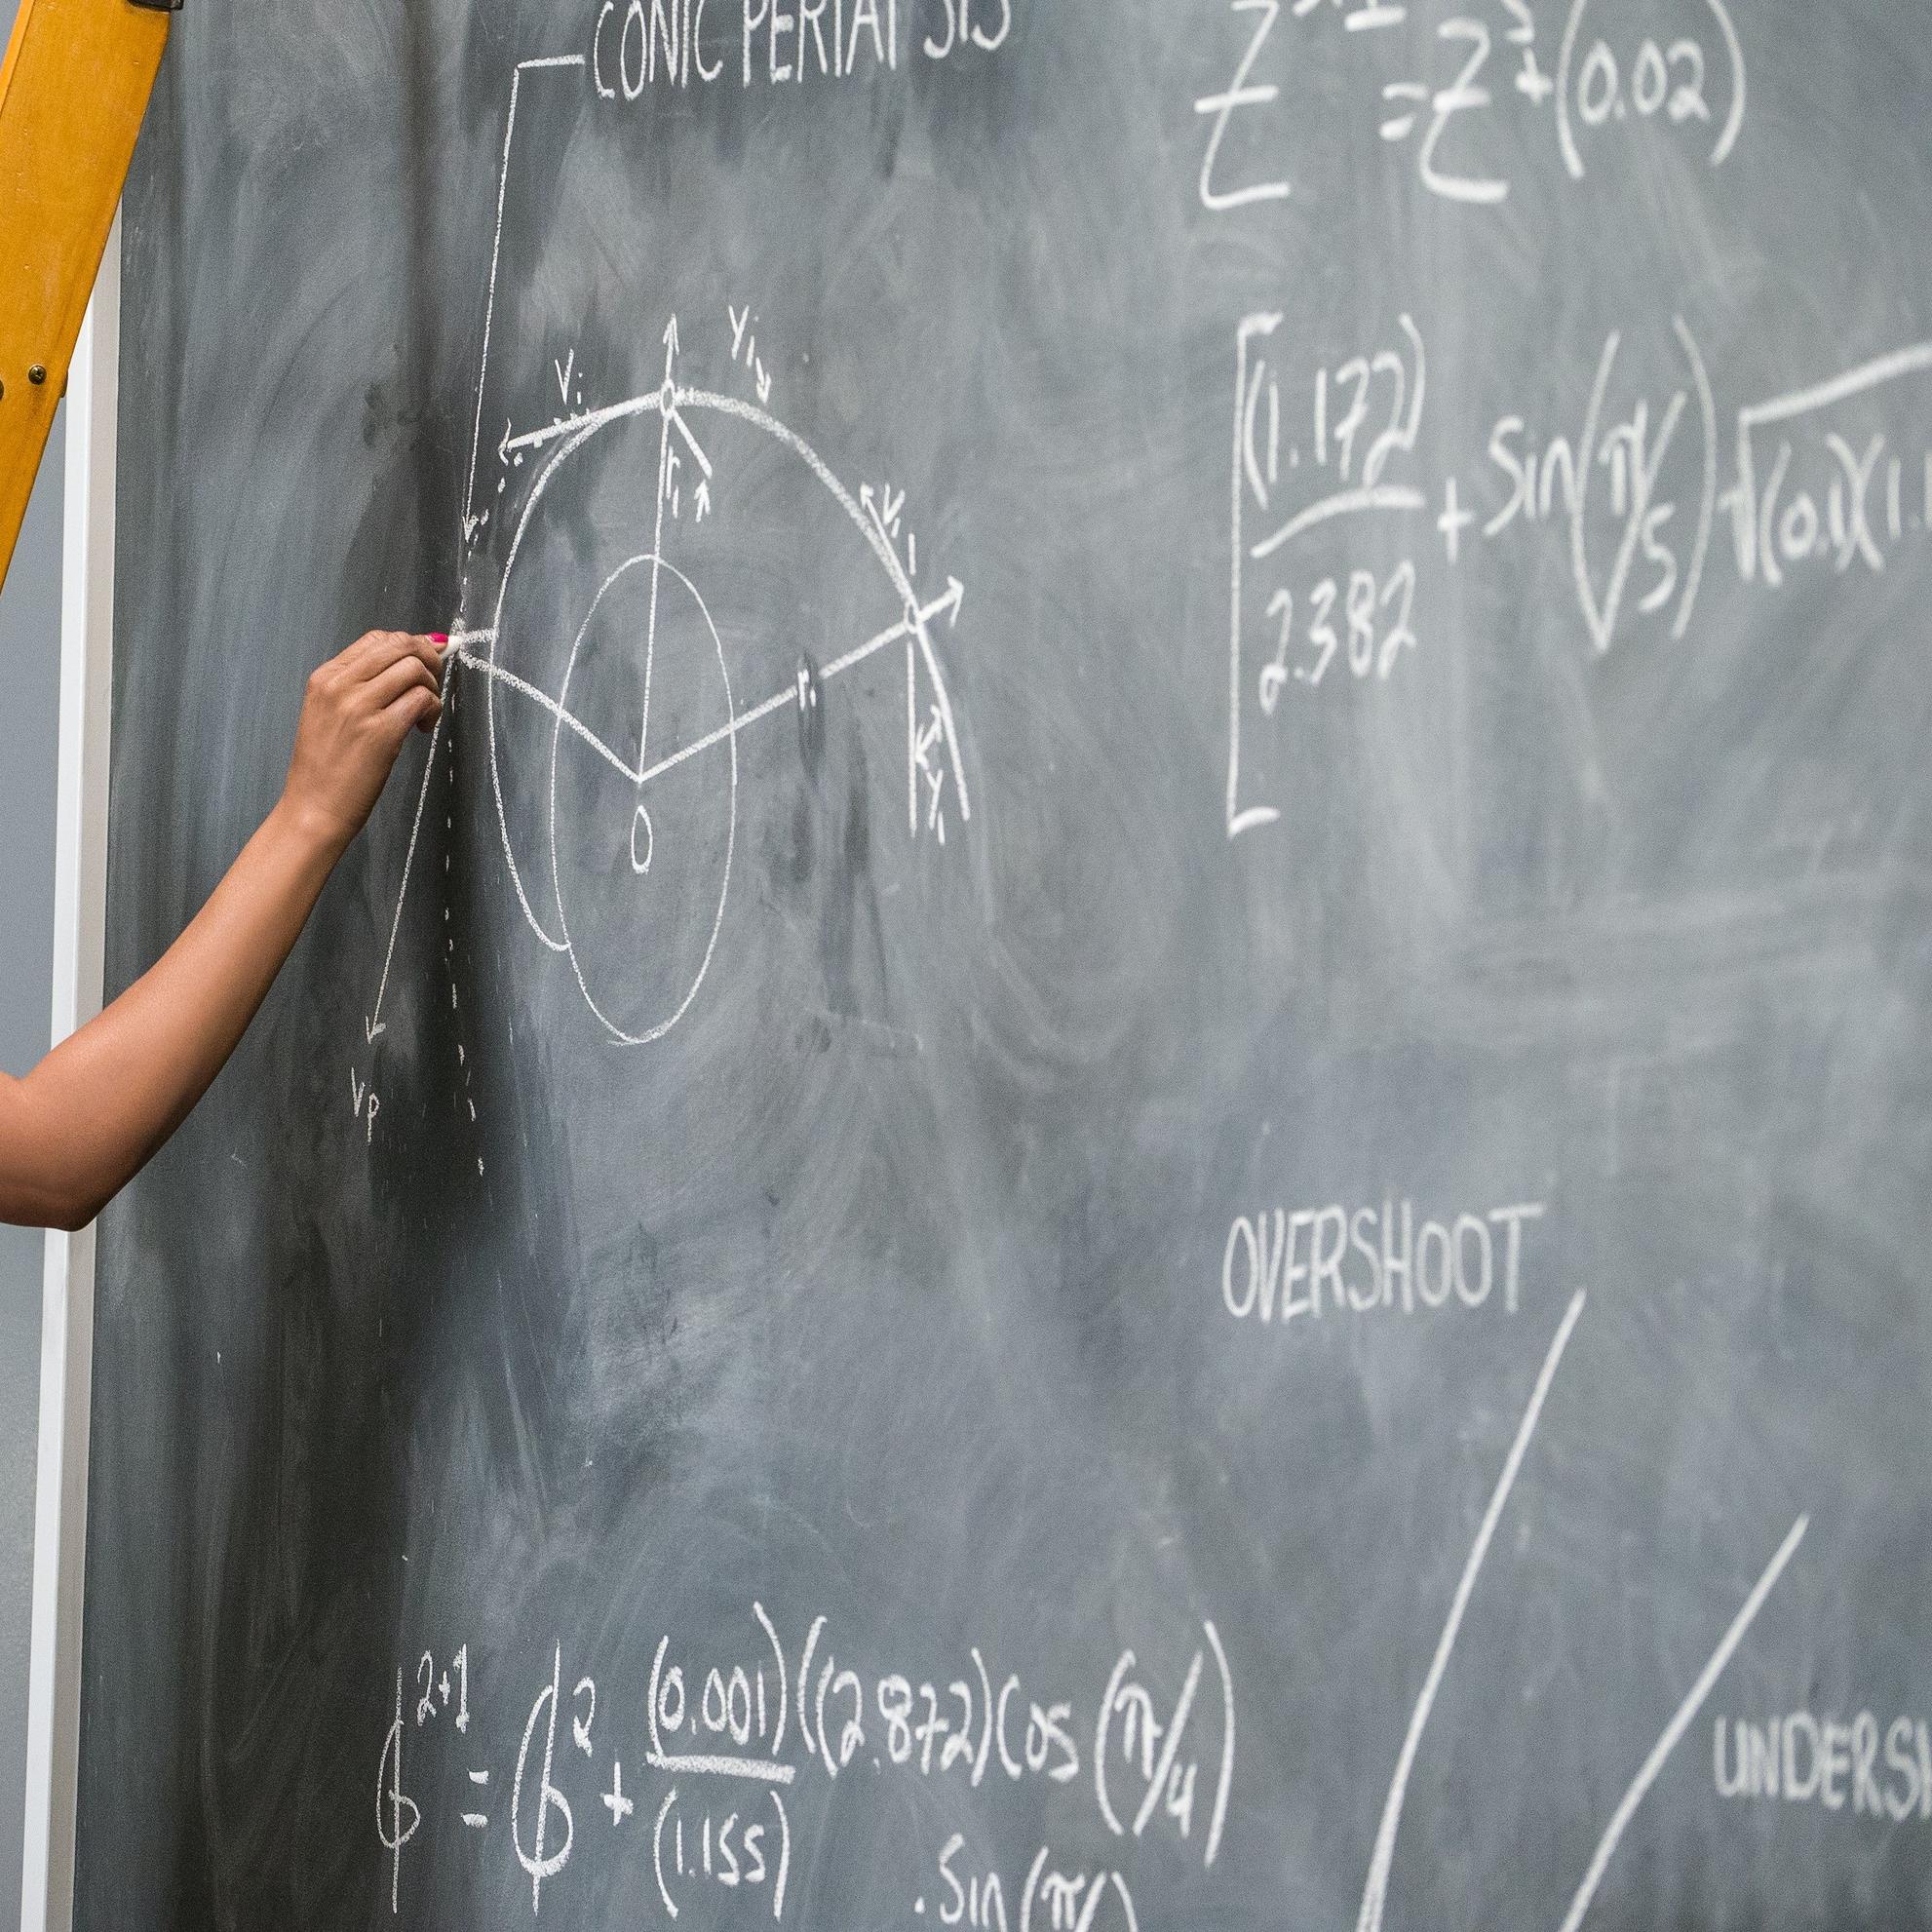 CONIC PERIAPSIS
= Z + (0.02)
Vi
Yi
ri
Vi
ri
Yi
O
Vp
(1.172)
2.382
+ Sin(π/5) √(0.1)(1.
OVERSHOOT
UNDERSH
ϕ²⁺¹ = ϕ² + (0.001)((2.872)Cos(π/4)
(1.155)
.Sin(π/)